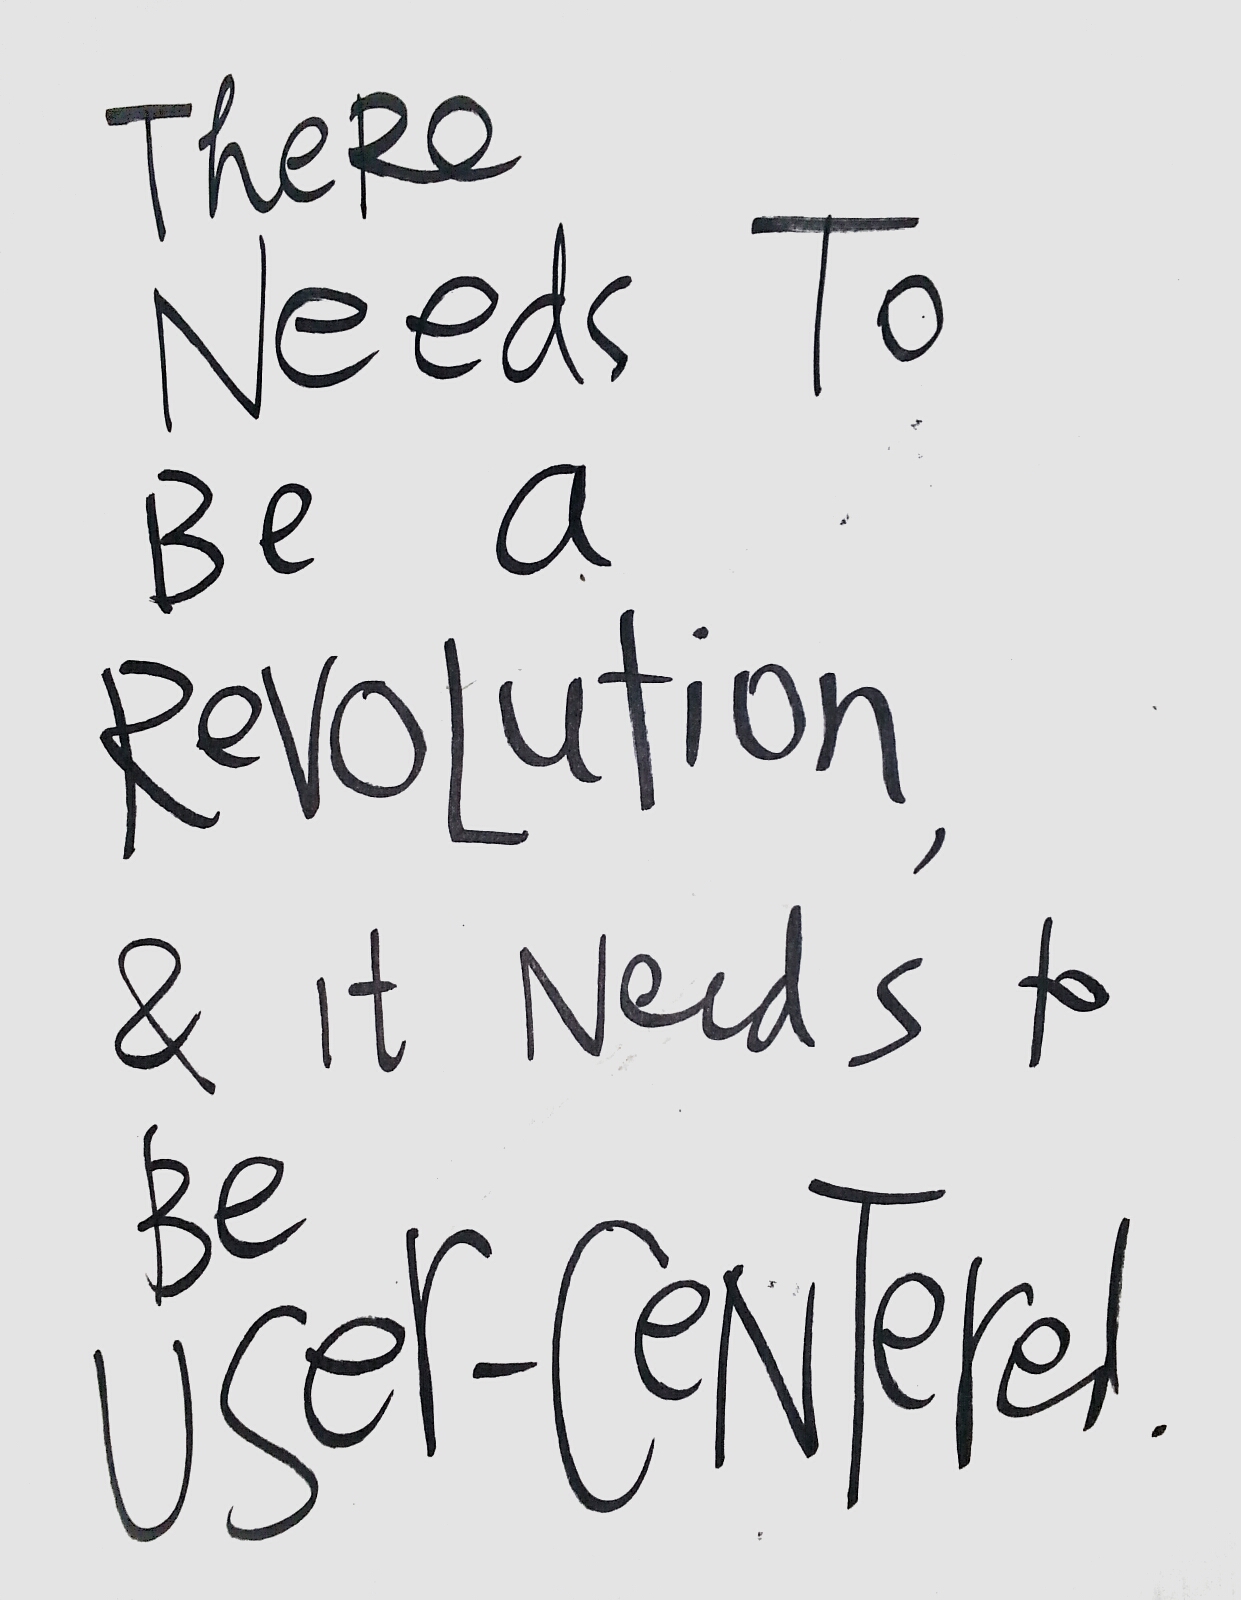 There
Needs To
Be a
Revolution,
& it Needs to
Be
User-Centered.